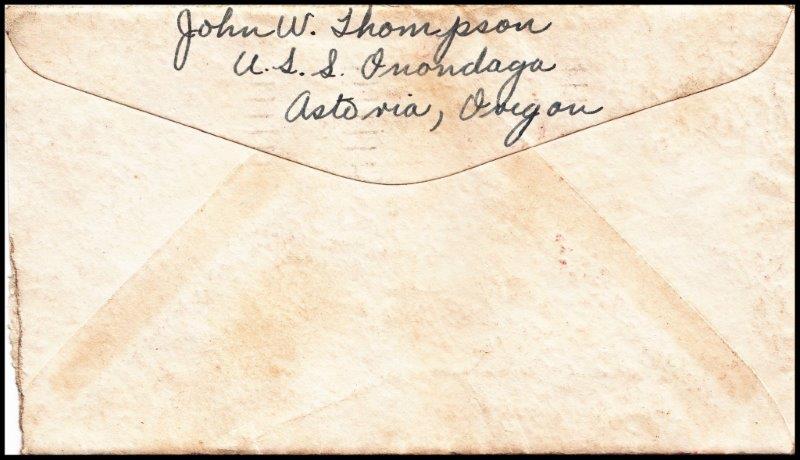 John W. Thompson
U.S.S. Onondaga
Astoria, Oregon